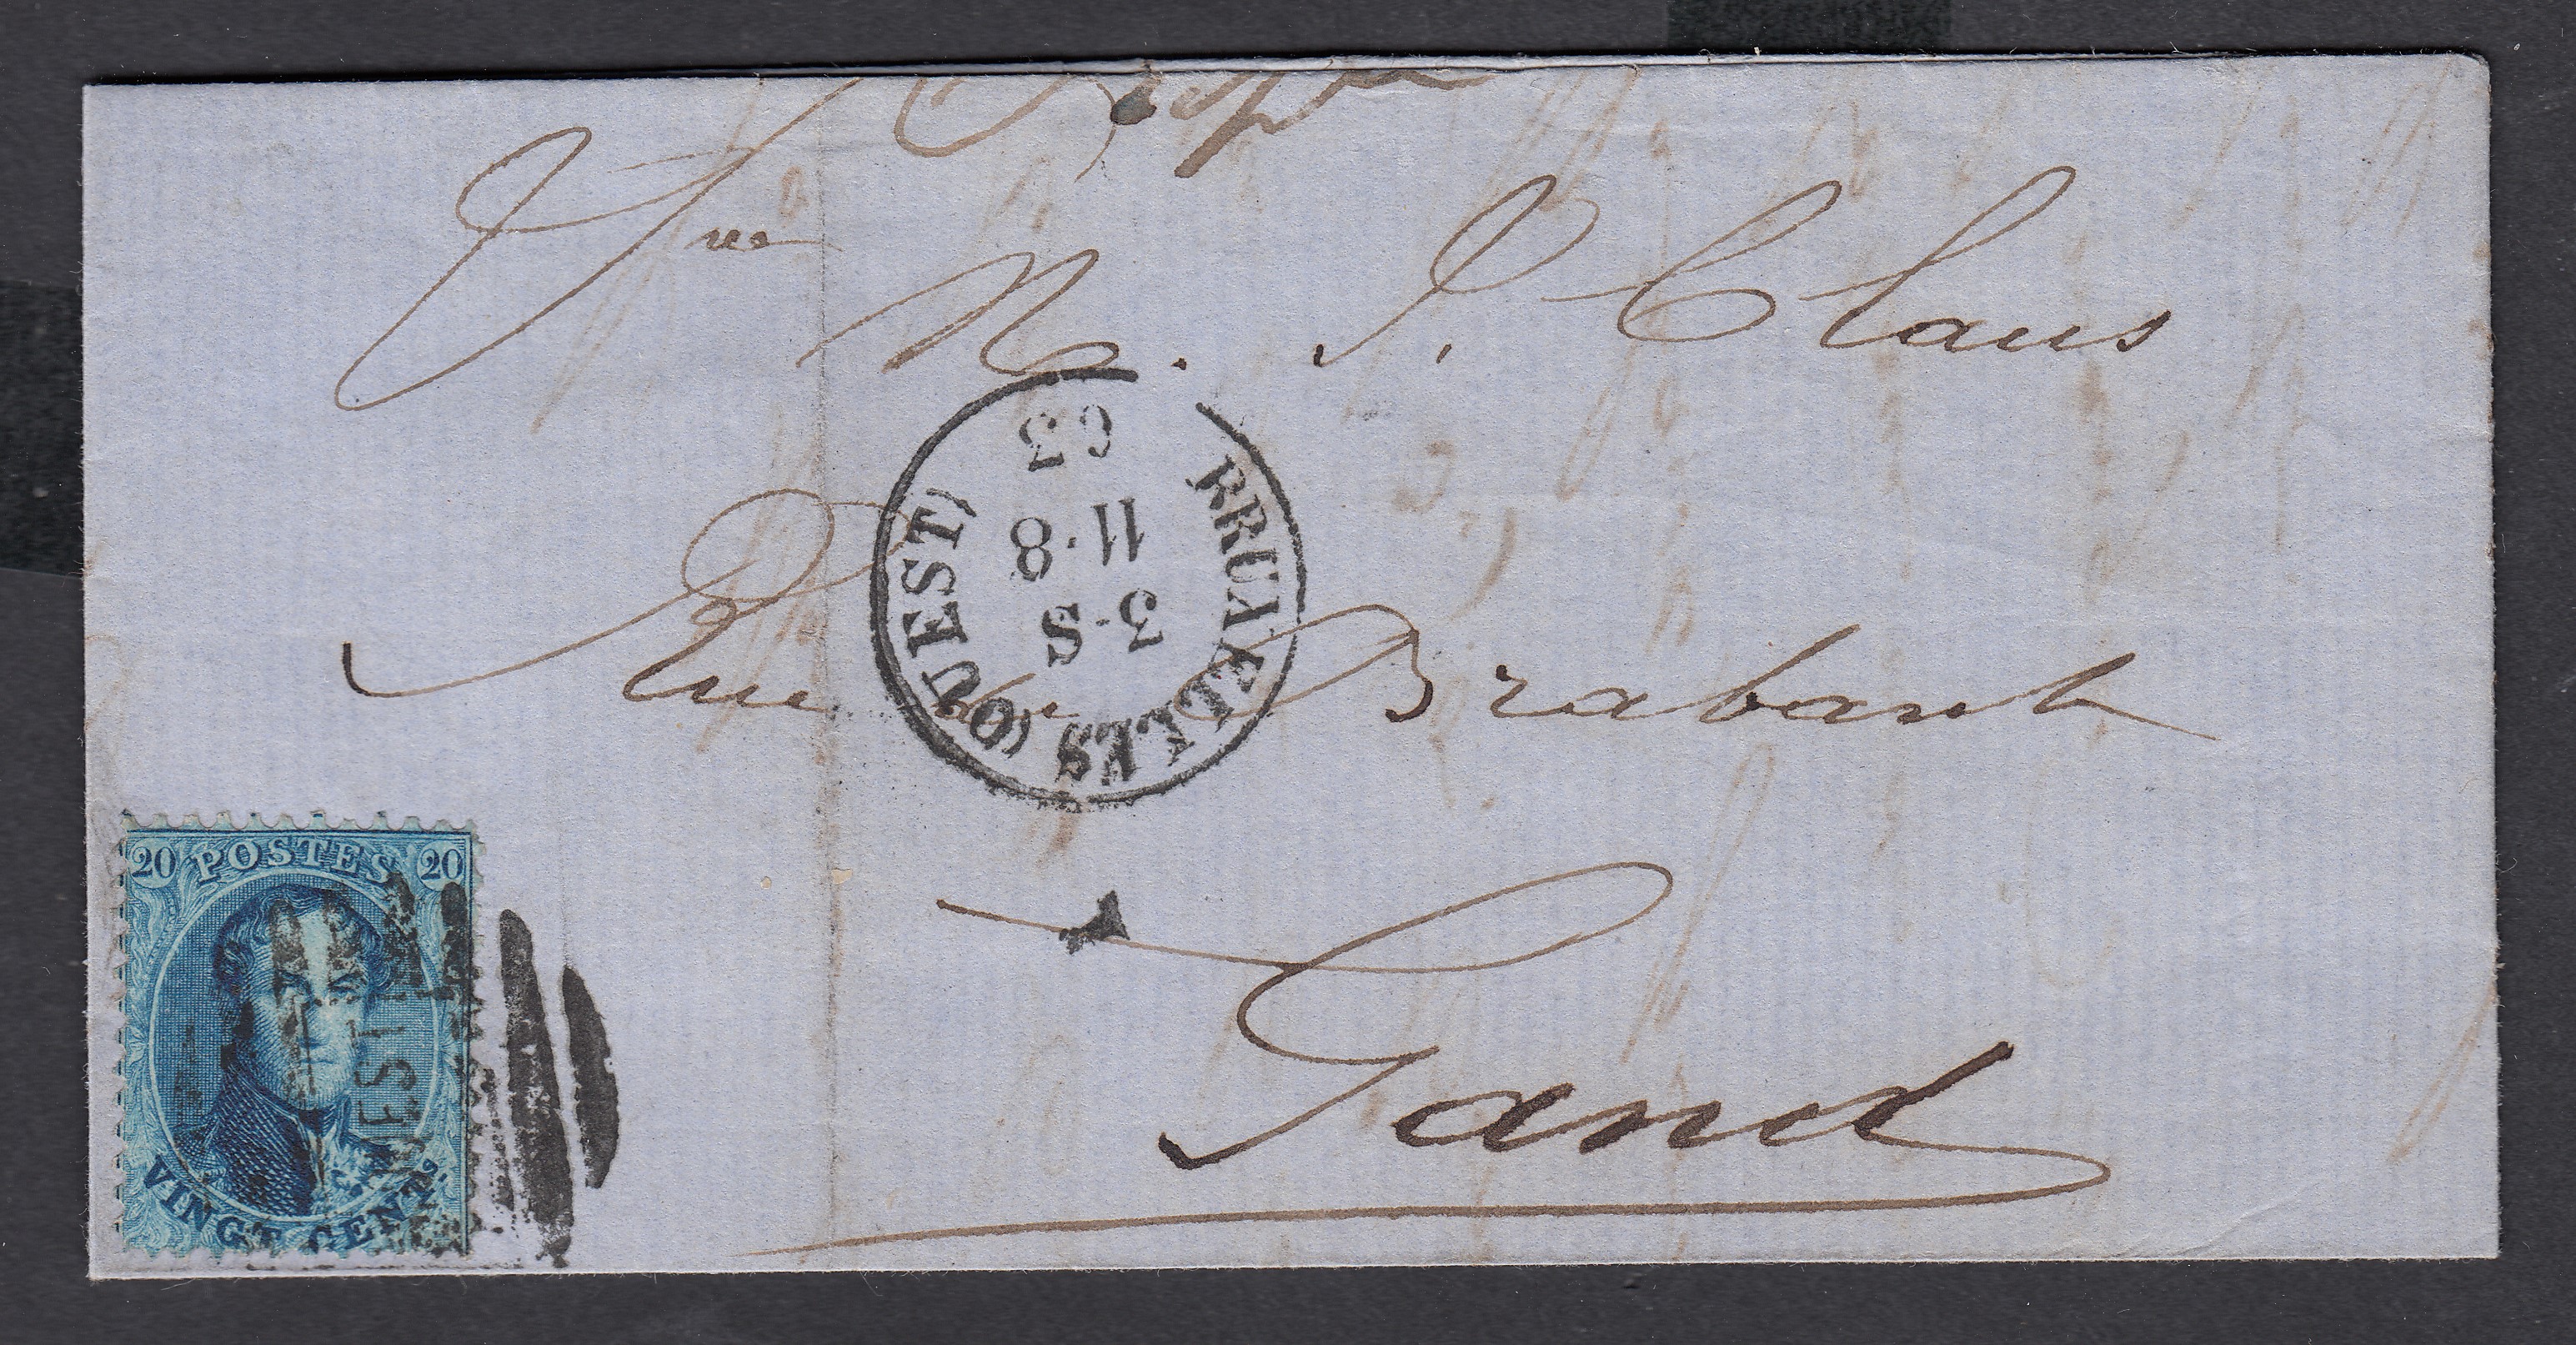 M. J. Claus
Rue de Brabant
Gand
BRUXELLES (OUEST)
3·S
11·8
63
1
20 POSTES 20
VINGT CENT.
OUEST